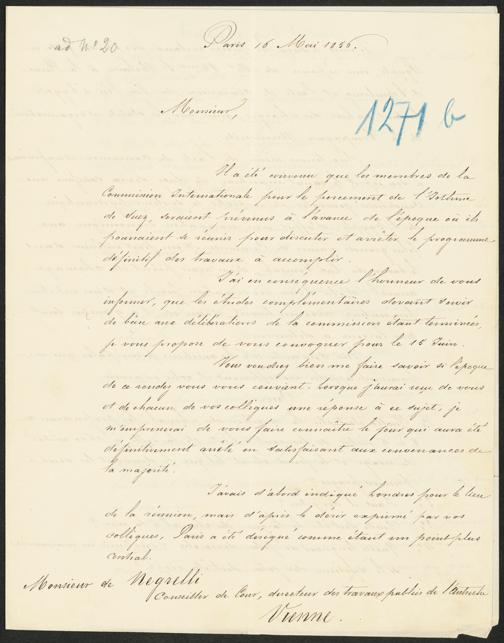 ad Nº 20
Paris 16 Mai 1856.
1271 b
Monsieur,
Il a été convenu que les membres de la
Commission Internationale pour le percement de l'Isthme
de Suez seraient prévenus à l'avance de l'époque où ils
pourraient se réunir pour discuter et arrêter le programme
définitif des travaux à accomplir.
J'ai en conséquence l'honneur de vous
informer, que les études complémentaires devant servir
de bâse aux délibérations de la commission étant terminées,
je vous propose de vous convoquer pour le 15 Juin.
Vous voudrez bien me faire savoir si l'époque
de ce rendez vous vous convient. Lorsque j'aurai reçu de vous
et de chacun de vos collègues une réponse à ce sujet, je
m'empresserai de vous faire connaître le jour qui aura été
définitivement arrêté en satisfaisant aux convenances de
la majorité.
J'avais d'abord indiqué Londres pour le lieu
de la réunion, mais d'après le désir exprimé par vos
collègues, Paris a été designé comme étant un point plus
central.
Monsieur de Negrelli
Conseiller de Cour, directeur des travaux publics de l'Autriche
Vienne.